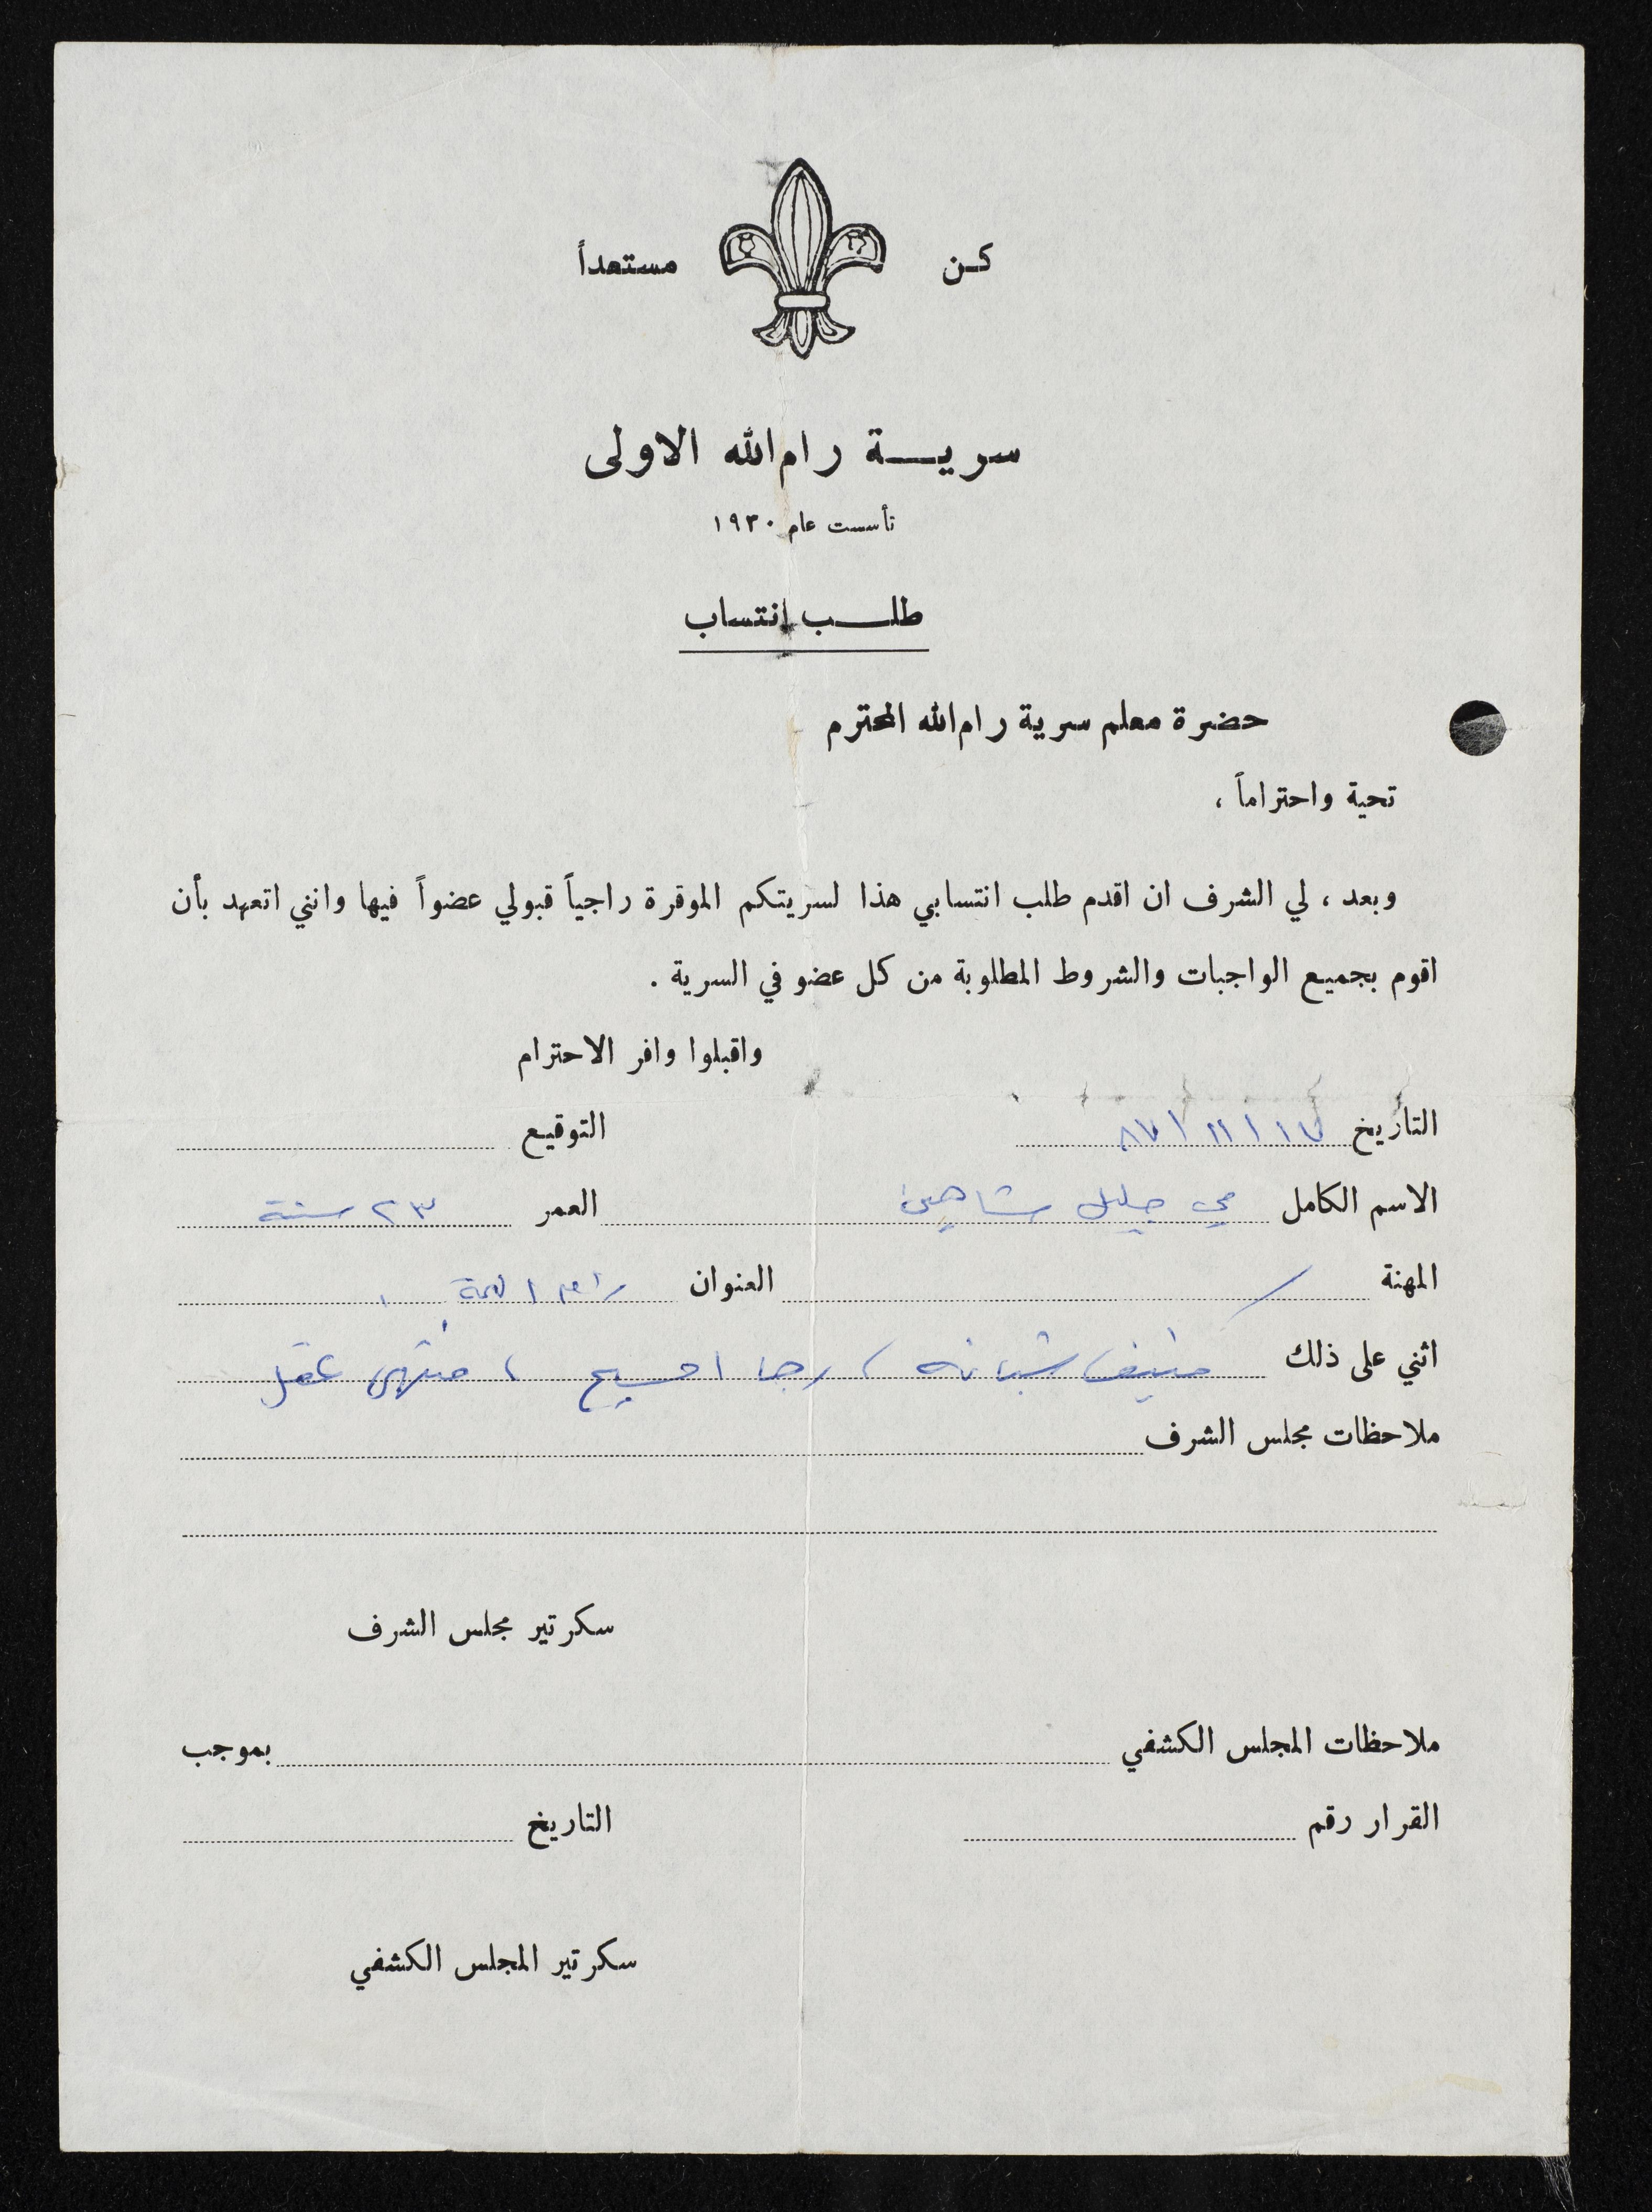 كن مستعداً
سرية رام الله الاولى
تأسست عام ١٩٣٠
طلب إنتساب
حضرة معلم سرية رام الله المحترم
تحية واحتراماً ،
وبعد ، لي الشرف ان اقدم طلب انتسابي هذا لسريتكم الموقرة راجياً قبولي عضواً فيها وانني اتعهد بأن
اقوم بجميع الواجبات والشروط المطلوبة من كل عضو في السرية .
واقبلوا وافر الاحترام
التاريخ ١٧ / ١١ / ٨٧ التوقيع
الاسم الكامل مي جليل شاهين العمر ٢٣ سنة
المهنة / العنوان رام الله
اثني على ذلك شبانه ، رجا المسيح ، منتهى عقل
ملاحظات مجلس الشرف
سكرتير مجلس الشرف
ملاحظات المجلس الكشفي بموجب
القرار رقم التاريخ
سكرتير المجلس الكشفي